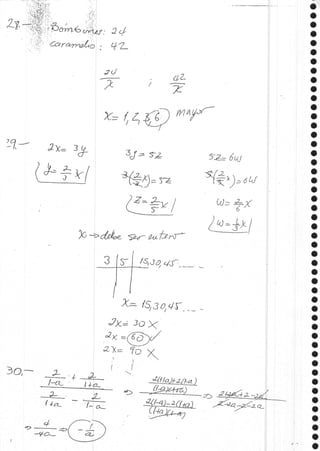 28.- Bombones: 24
caramelo: 42
24/x ; 42/x
x = 1, 2, 3, 6 mayor
29.- 2x = 3y 3y = 5z 5z = 6w
y = 2/3 x 3(2/3 x) = 5z 5(2/5 x) = 6w
z = 2/5 x w = 2/6 x
w = 1/3 x
x → debe ser entero
3 | 5 | 15, 30, 45 ....
x = 15, 30, 45 ....
2x = 30 X
2x = 60 ✓
2x = 90 X
30.- (2/(1-a) + 2/(1+a)) / (2/(1+a) - 2/(1-a)) ⇒ (2(1+a)+2(1-a))/((1-a)(1+a)) / (2(1-a)-2(1+a))/((1+a)(1-a)) ⇒ (2+2a+2-2a)/(2-2a-2-2a)
⇒ 4/-4a ⇒ -1/a